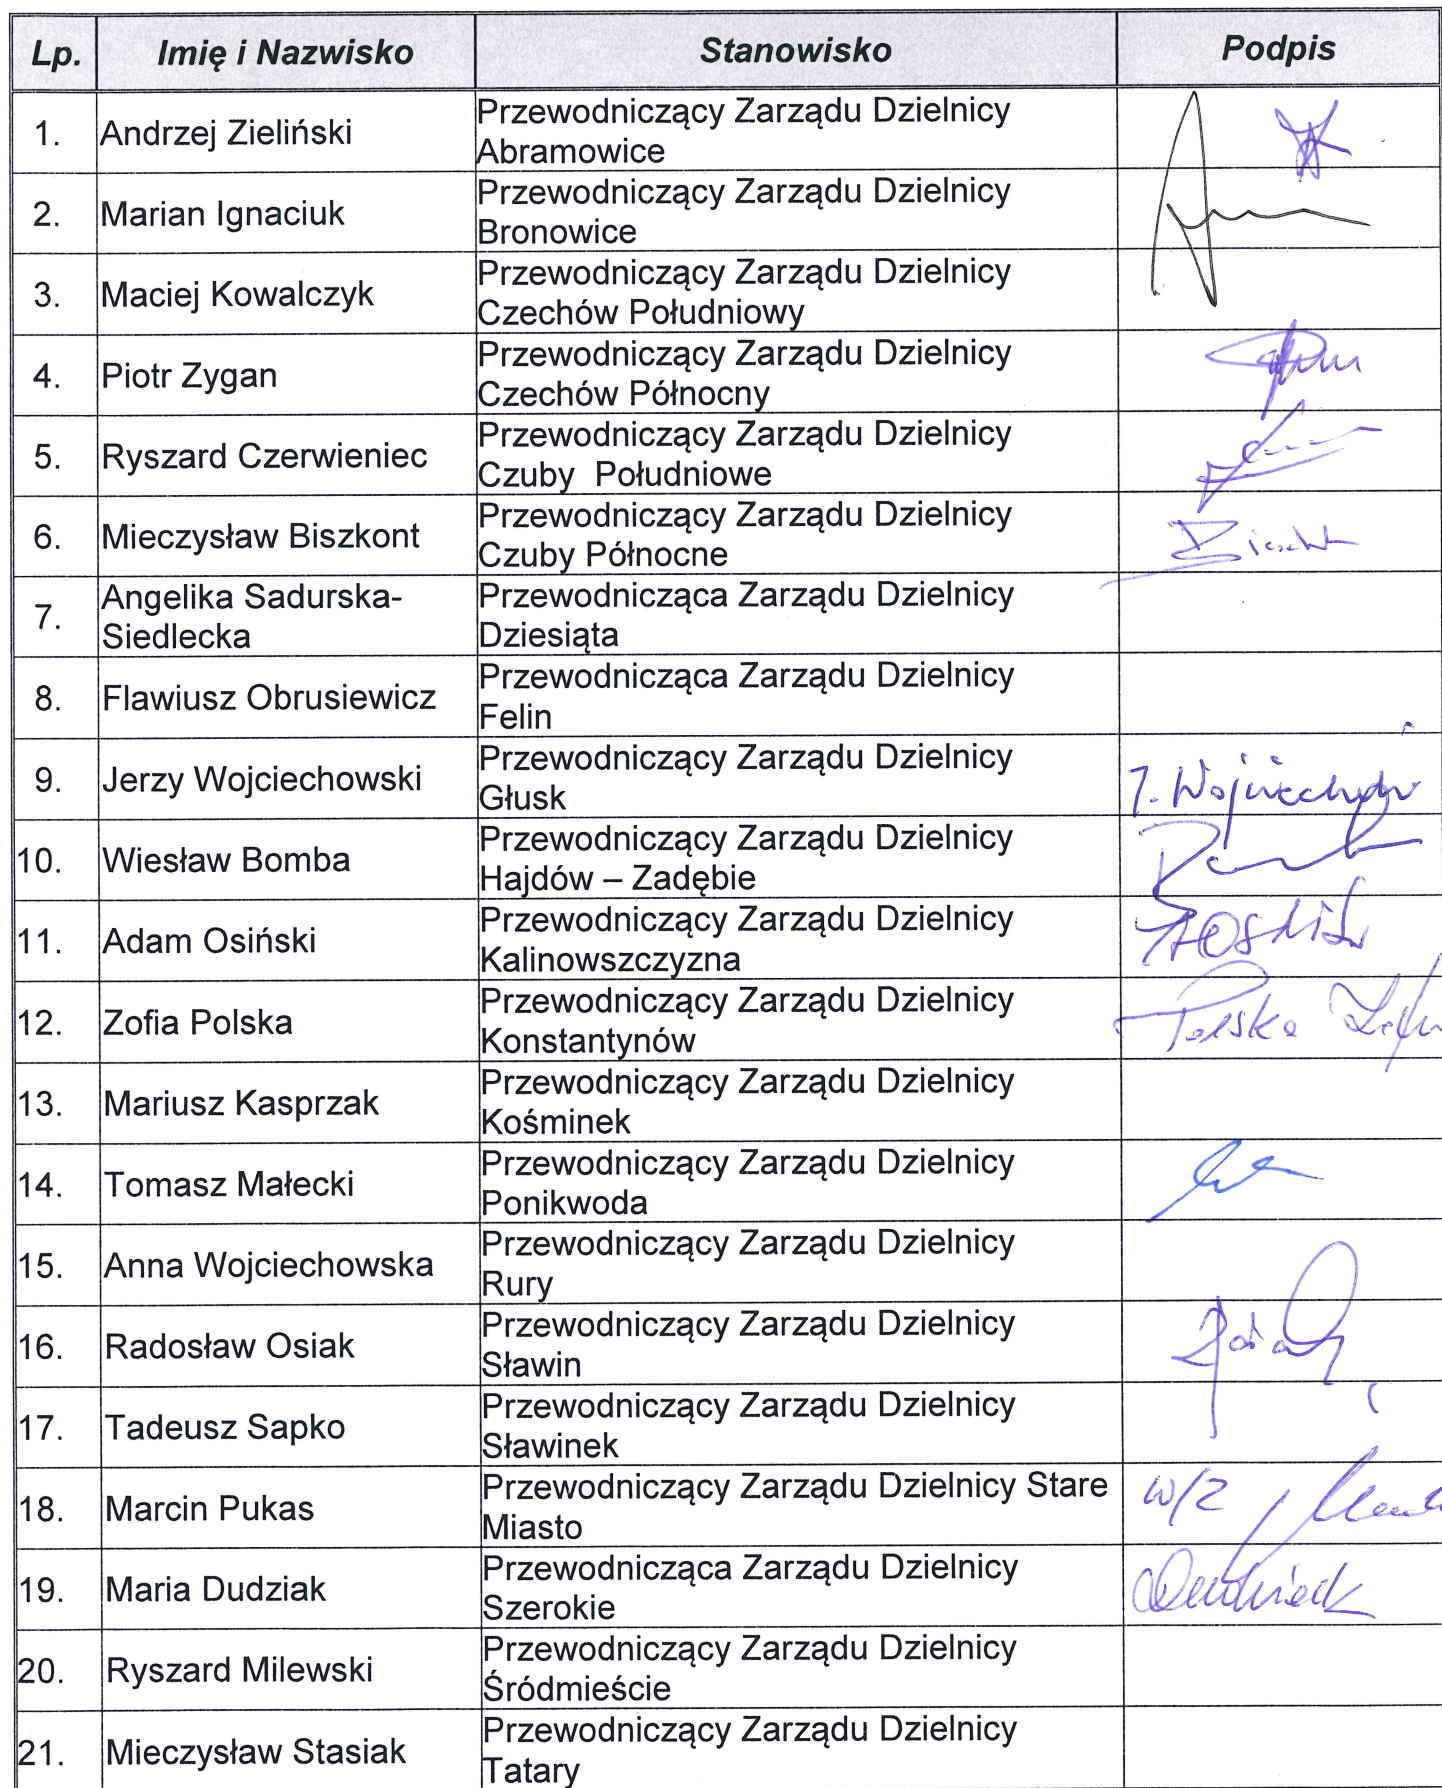 Lp. Imię i Nazwisko Stanowisko Podpis
1. Andrzej Zieliński Przewodniczący Zarządu Dzielnicy
Abramowice
2. Marian Ignaciuk Przewodniczący Zarządu Dzielnicy
Bronowice
3. Maciej Kowalczyk Przewodniczący Zarządu Dzielnicy
Czechów Południowy
4. Piotr Zygan Przewodniczący Zarządu Dzielnicy
Czechów Północny
5. Ryszard Czerwieniec Przewodniczący Zarządu Dzielnicy
Czuby Południowe
6. Mieczysław Biszkont Przewodniczący Zarządu Dzielnicy
Czuby Północne
7. Angelika Sadurska- Przewodnicząca Zarządu Dzielnicy
Siedlecka Dziesiąta
8. Flawiusz Obrusiewicz Przewodnicząca Zarządu Dzielnicy
Felin
9. Jerzy Wojciechowski Przewodniczący Zarządu Dzielnicy
Głusk J. Wojciechowski
10. Wiesław Bomba Przewodniczący Zarządu Dzielnicy
Hajdów – Zadębie
11. Adam Osiński Przewodniczący Zarządu Dzielnicy
Kalinowszczyzna
12. Zofia Polska Przewodniczący Zarządu Dzielnicy
Konstantynów Polska
13. Mariusz Kasprzak Przewodniczący Zarządu Dzielnicy
Kośminek
14. Tomasz Małecki Przewodniczący Zarządu Dzielnicy
Ponikwoda
15. Anna Wojciechowska Przewodniczący Zarządu Dzielnicy
Rury
16. Radosław Osiak Przewodniczący Zarządu Dzielnicy
Sławin
17. Tadeusz Sapko Przewodniczący Zarządu Dzielnicy
Sławinek
18. Marcin Pukas Przewodniczący Zarządu Dzielnicy Stare w/z
Miasto
19. Maria Dudziak Przewodnicząca Zarządu Dzielnicy
Szerokie
20. Ryszard Milewski Przewodniczący Zarządu Dzielnicy
Śródmieście
21. Mieczysław Stasiak Przewodniczący Zarządu Dzielnicy
Tatary